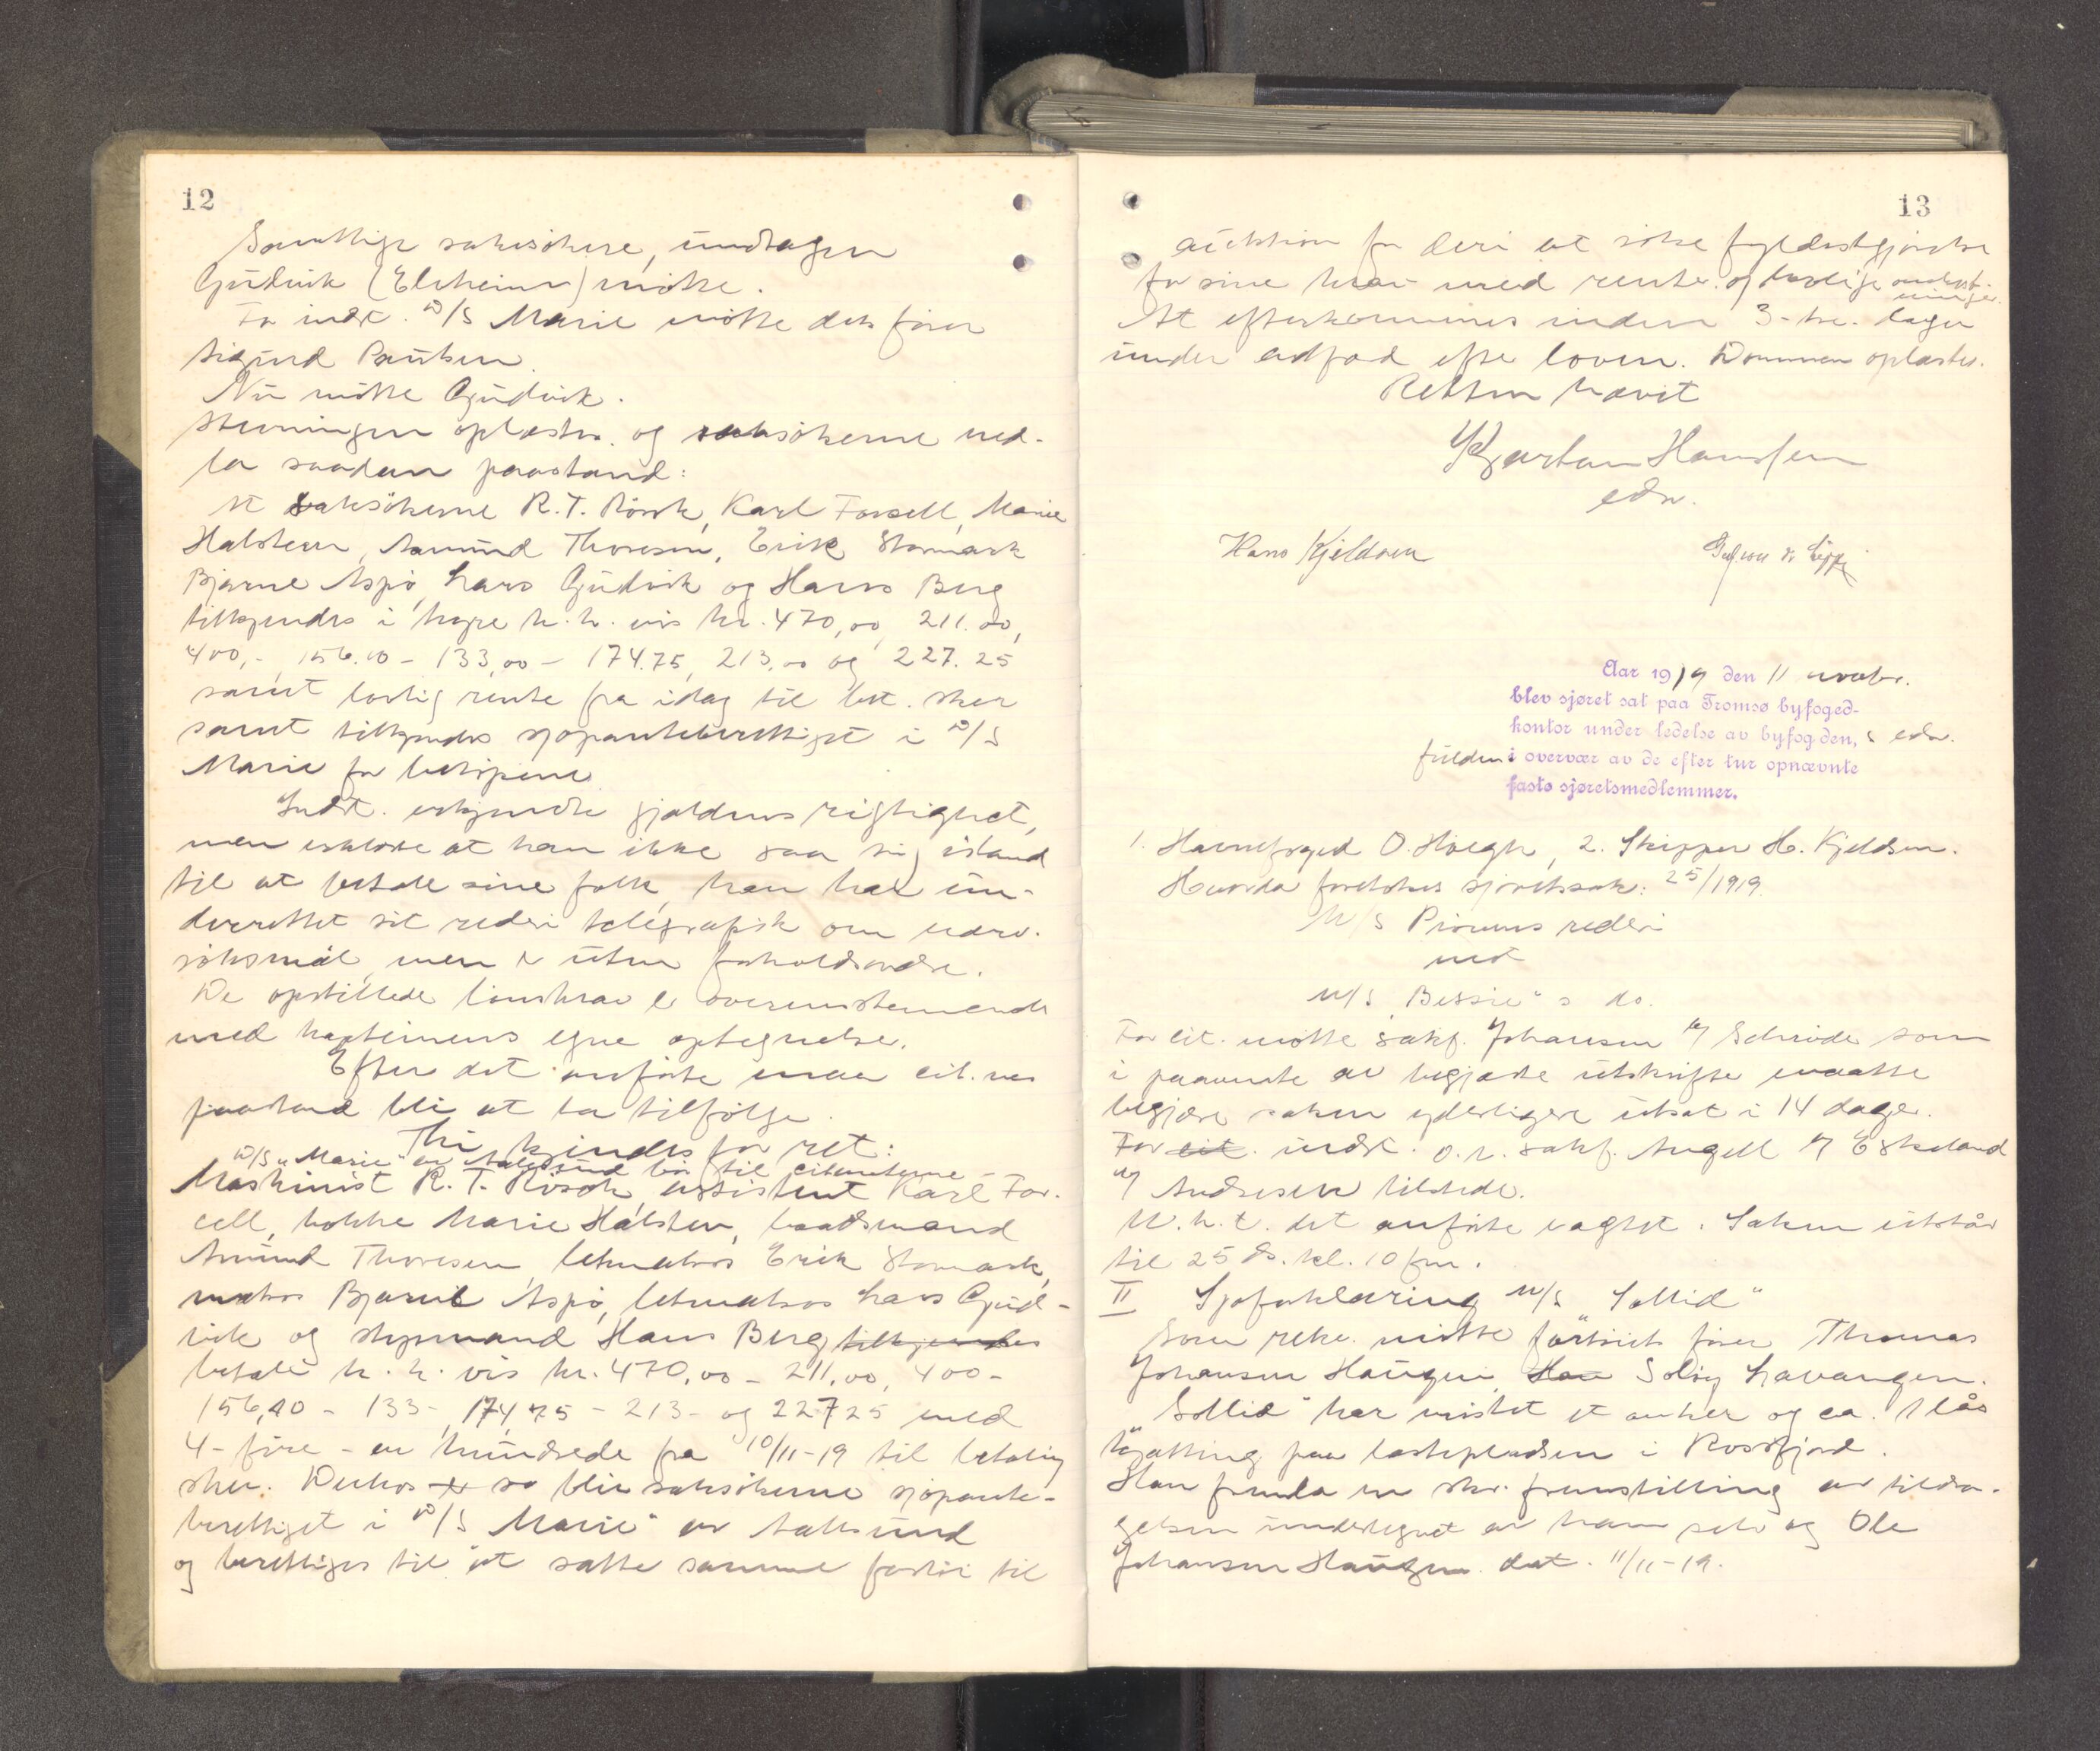 12
Samtlige saksøkere, undtagen
Gudvik (Elvheim) møtte.
For indst. D/S Marie møtte dets fører
Sigurd Paulsen.
Nu møtte Gudvik.
Stevningen oplæstes og saksøkerne ned-
la saadan paastand:
At saksøkerne R. T. Rösok, Karl Forsell, Marie
Halsteen, Amund Thoresen, Erik Stormark
Bjarne Aspö, Lars Gudvik og Hans Berg
tilkjendes i hyre h. h. vis kr. 470,00, 211.00,
400,-, 156.10 - 133,00 - 174.75, 213.00 og 227.25
samt lovlig rente fra idag til bet. sker
samt tilkjendes sjøpanteberettiget i D/S
Marie for beløpene.
Indst. erkjendte gjældens rigtighet,
men erklærte at han ikke saa sig istand
til at betale sine folk, han har un-
derrettet sit rederi telegrafisk om nærv.
søksmål, men er uten forholdsordre.
De opstillede lønskrav er overensstemmende
med kapteinens egne optegnelser.
Efter det anførte maa cit.nes
paastand bli at ta tilfølge.
Thi kjendes for ret:
D/S "Marie" av Aalesund bør til citanterne -
Maskinist R. T. Rösok, assistent Karl For-
cell, kokke Marie Halsten, baadsmand
Amund Thoresen, letmatros Erik Stormark,
matros Bjarne Aspö, letmatros Lars Gud-
vik og styrmand Hans Berg tilkjendes
betale h. h. vis kr. 470,00 - 211,00, 400 -
156,10 - 133 - 174,75 - 213 - og 227 25 med
4 - fire - av hundrede fra 10/11-19 til betaling
sker. Derhos er so blir saksøkerne sjøpante-
berettiget i D/S "Marie" av Aalesund
og berettiges til at sætte samme fartøi til
13
auktion for deri at søke fyldestgjørelse
for sine krav med renter og lovlige omkost-
ninger.
At efterkommes inden 3 - tre - dager
under adfærd efter loven. Dommen oplæstes.
Retten hævet
Kjartan Hansen
edsv.
Hans Kjeldsen
Aar 1919 den 11 novbr.
blev sjøret sat paa Tromsø byfoged-
kontor under ledelse av byfogden, s edsv.
fuldm i overvær av de efter tur opnævnte
faste sjøretsmedlemmer.
1. Havnefoged O. Høegh, 2. Skipper H. Kjeldsen.
Hvorda foretokes sjøretssak: 25/1919.
M/S Pioneers rederi
mot
M/S "Bessie"s do.
For cit. møtte sakf. Johansen f/ Schrøder som
i paavente av begjærte utskrifter maatte
begjære saken yderligere utsat i 14 dage.
For cit. indst. o.r. sakf. Angell f/ Eskeland
f/ Andresen tilstede.
M. h. t. det anførte vagtet. Saken utstår
til 25 ds. kl. 10 fm.
II Sjøforklaring M/S "Sollid"
Som rekv. møtte fartøiets fører Thomas
Johansen Haugen, Han Solöy Lavangen.
"Sollid" har mistet et anker og ca. 1 lås
kjætting paa losseplassen i Rossfjord.
Han fremla en skr. fremstilling av tildra-
gelsen undertegnet av ham selv og Ole
Johansen Haugen dat. 11/11-19.